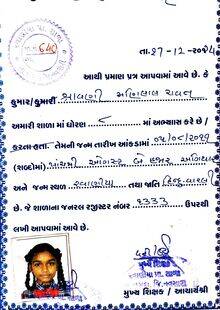 640
તા.૧૭-12-૨૦૨૪
આથી પ્રમાણ પત્ર આપવામાં આવે છે. કે
કુમાર/કુમારી શ્રાવણી મણિલાલ રાવત
અમારી શાળા માં ધોરણ ૮ માં અભ્યાસ કરે છે /
કરતા હતા. તેમની જન્મ તારીખ આંકડામાં
(શબ્દોમાં) પાંચમી ઓગસ્ટ બે હજાર અગિયાર
અને જન્મ સ્થળ તથા જાતિ હિન્દુ-વારલી
છે. જે શાળાના જનરલ રજીસ્ટર નંબર ૧૩૩૩ ઉપરથી
લખી આપવામાં આવે છે.
મુખ્ય શિક્ષક / આચાર્યશ્રી